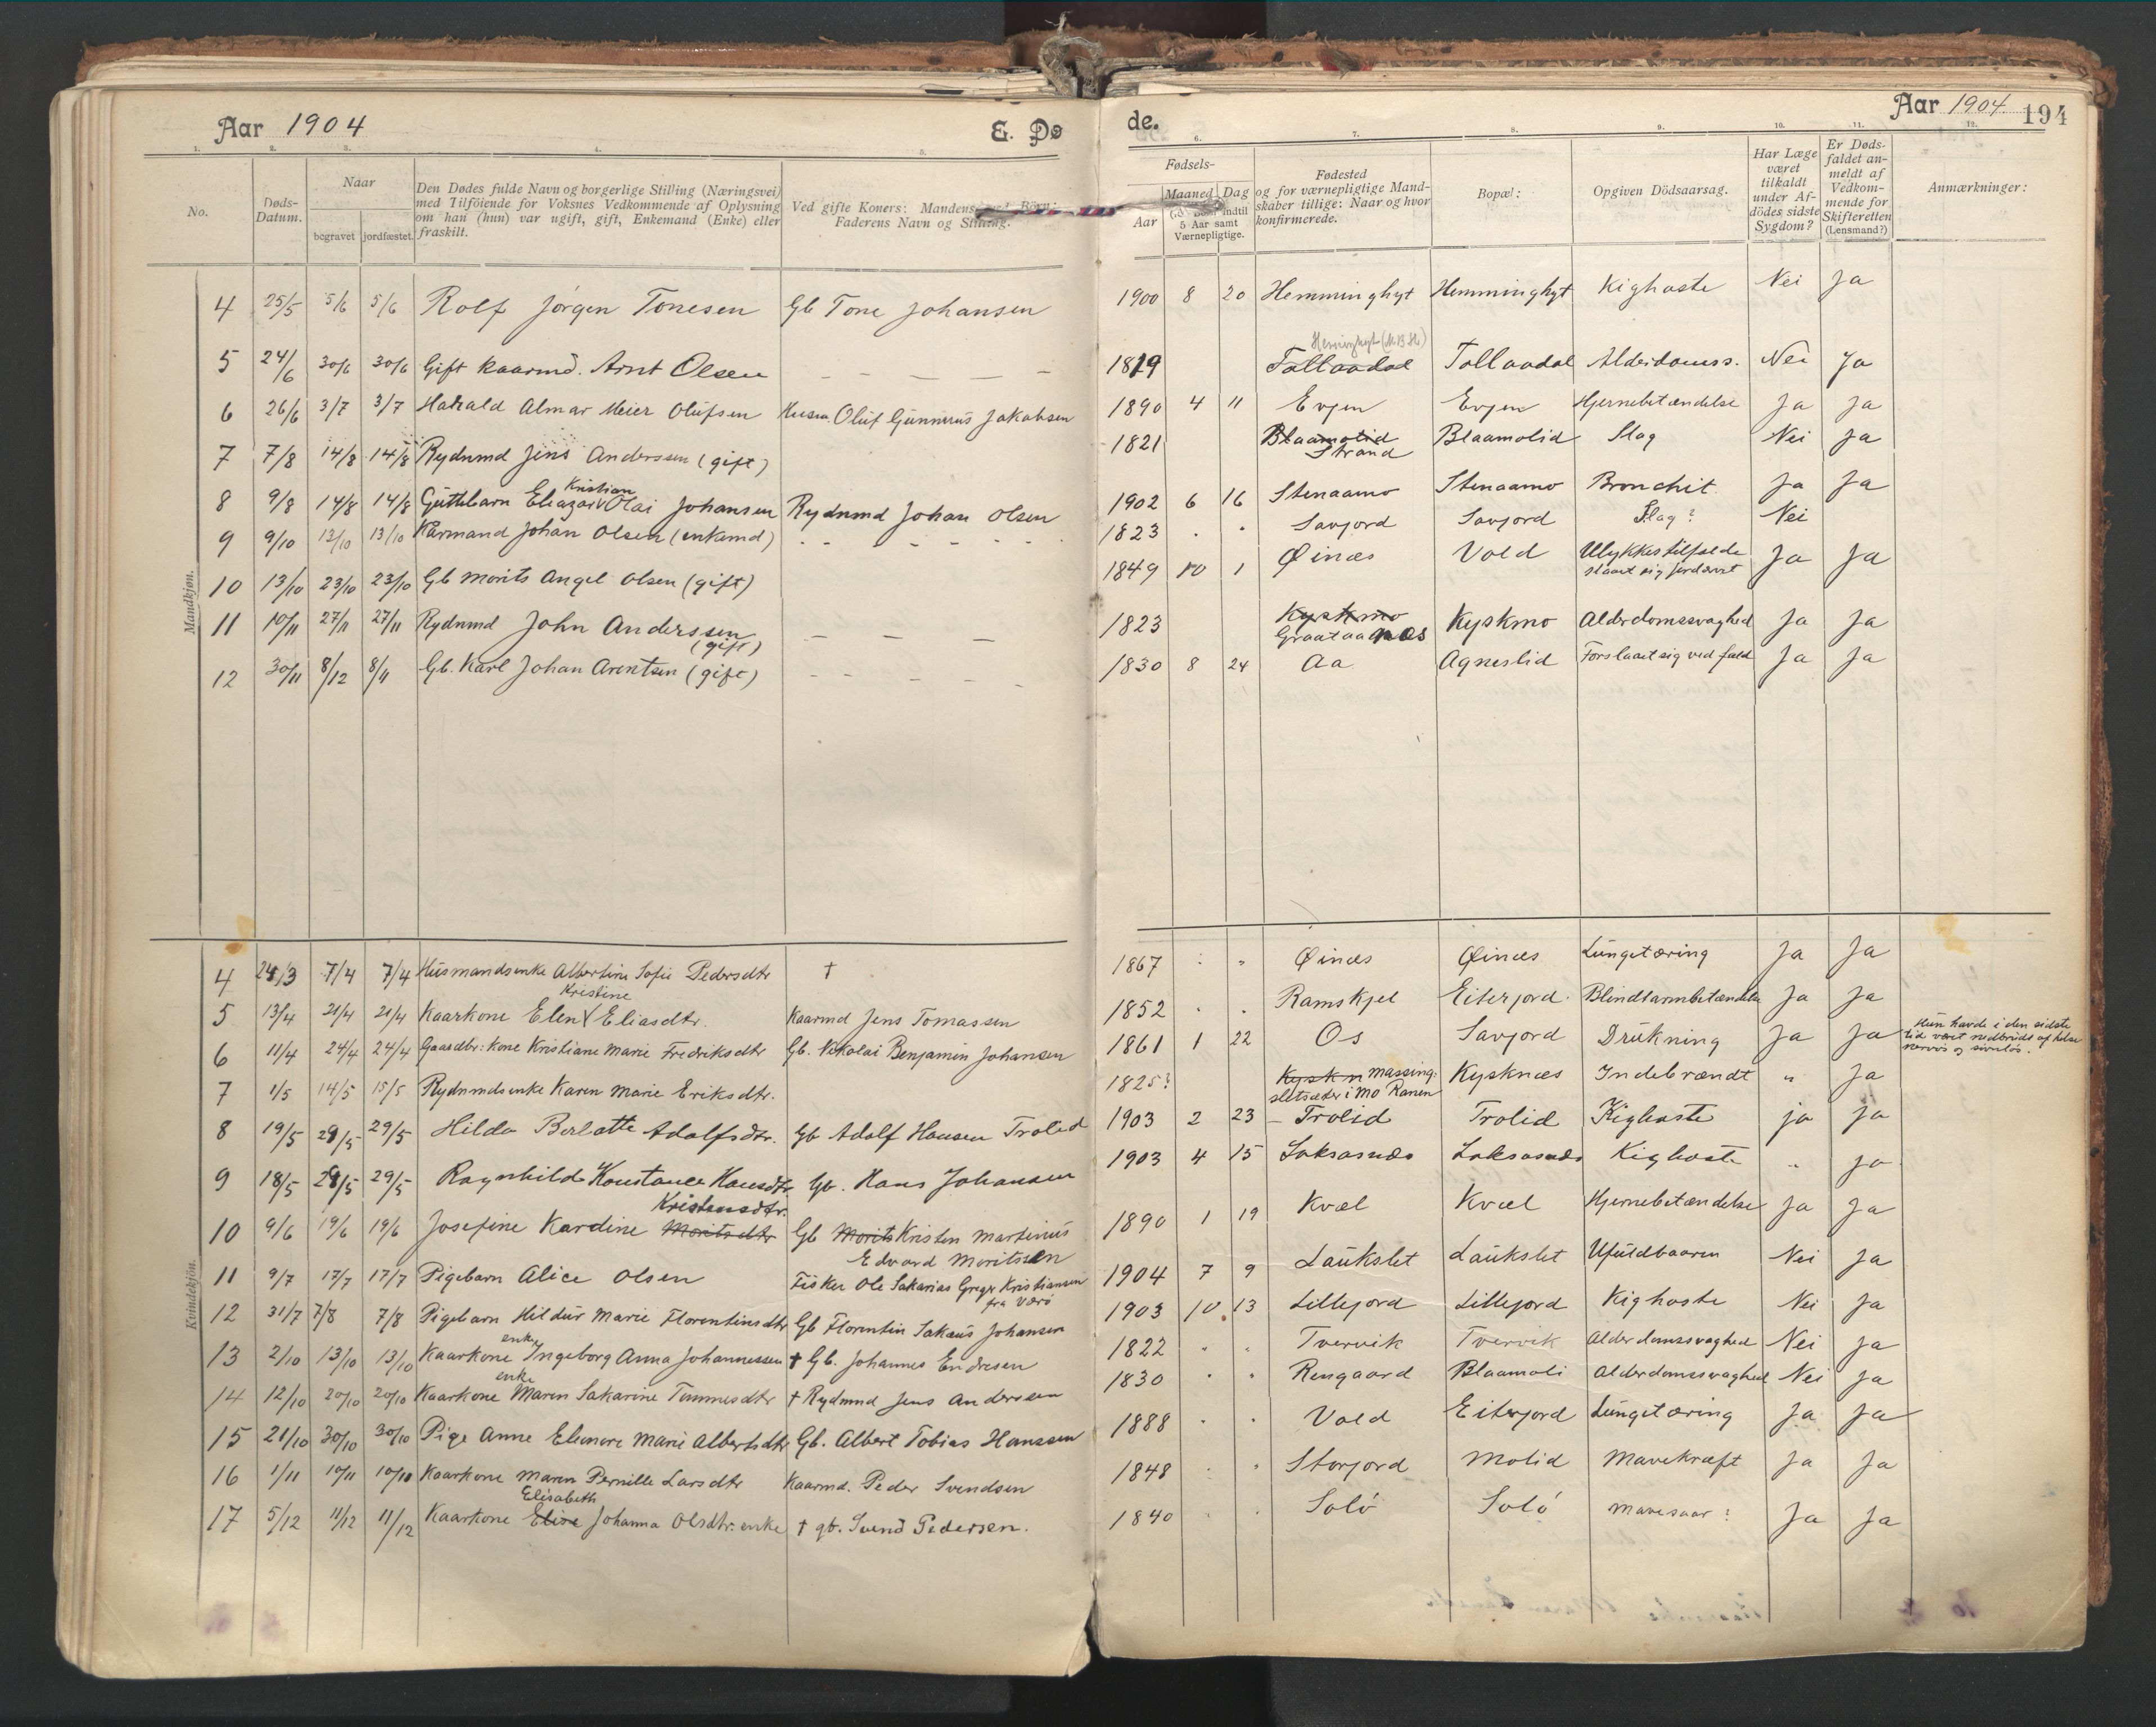 Aar 1904 E. Dø de. Aar 1904. 194
1. 2. 3. 4. 5. 6. 7. 8. 9. 10. 11. 12.
No.
Døds-
Datum.
Naar
begravet jordfæstet.
Den Dødes fulde Navn og borgerlige Stilling (Næringsvei)
med Tilföiende for Voksnes Vedkommende af Oplysning
om han (hun) var ugift, gift, Enkemand (Enke) eller
fraskilt.
Ved gifte Koners: Mandens, ved Börn:
Faderens Navn og Stilling.
Fødsels-
Aar
Maaned Dag
Börn indtil
5 Aar samt
Værnepligtige.
Fødested
og for værnepligtige Mand-
skaber tillige: Naar og hvor
konfirmerede.
Bopæl:
Opgiven Dödsaarsag.
Har Læge
været
tilkaldt
under Af-
dödes sidste
Sygdom?
Er Døds-
faldet an-
meldt af
Vedkom-
mende for
Skifteretten
(Lensmand?)
Anmærkninger:
Mandkjøn.
4 25/5 5/6 5/6 Rolf Jørgen Tonesen Gb Tone Johansen 1900 8 20 Hemminghyt Hemminghyt Kighoste Nei Ja
Hemminghyt (M.B.H.)
5 24/6 30/6 30/6 Gift kaarmd. Arnt Olsen — — — — — 1819 Tollaadal Tollaadal Alderdomss. Nei Ja
6 26/6 3/7 3/7 Harald Almar Meier Olufsen Husm. Oluf Gunnerus Jakobsen 1890 4 11 Evjen Evjen Hjernebetændelse Ja Ja
7 7/8 14/8 14/8 Rydnmd Jens Anderssen (gift) 1821 Blaamolid Blaamolid Slag Nei Ja
Strand
Kristian
8 9/8 14/8 14/8 Guttebarn Eleazar Olai Johansen Rydnmd Johan Olsen 1902 6 16 Stenaamo Stenaamo Bronchit Ja Ja
9 9/10 13/10 13/10 Karmand Johan Olsen (enkemd) - - - - - - 1823 . . Savjord Savjord Slag? Nei
10 13/10 23/10 23/10 Gb Morits Angel Olsen (gift) 1849 10 1 Øinæs Vold Ulykkestilfælde Ja Ja
slaaet sig fordærvet
11 10/11 27/11 27/11 Rydnmd John Anderssen — — — 1823 Kyskmo Kyskmo Alderdomssvaghed Ja Ja
(gift) Graataanæs
12 30/11 8/12 8/11 Gb. Karl Johan Arentsen (gift) - - - - - 1830 8 24 Aa Agneslid Forslaaet sig ved fald Ja Ja
Kvindekjön.
4 24/3 7/4 7/4 Husmandsenke Albertine Sofie Pedersdtr † 1867 . " Øinæs Øinæs Lungetæring Ja Ja
Kristine
5 13/4 21/4 21/4 Kaarkone Elen Eliasdtr. Kaarmd Jens Tomassen 1852 . . Ramskjel Eiterjord Blindtarmbetændelse Ja Ja
6 11/4 24/4 24/4 Gaardbr: kone Kristiane Marie Fredriksdtr Gb. Nikolai Benjamin Johansen 1861 1 22 Os Savjord Drukning Ja Ja Hun havde i den sidste
tid været nedbrudt af helse
nervøs og søvnløs.
7 1/5 14/5 15/5 Rydnmdsenke Karen Marie Eriksdtr. 1825? Kyskn Massing: Kysknæs Indebrændt " Ja
sletsæter i Mo Ranen
8 19/5 29/5 29/5 Hilda Berlotte Adolfsdtr. Gb Adolf Hansen Trolid 1903 2 23 Trolid Trolid Kighoste ja ja
9 18/5 29/5 29/5 Ragnhilda Konstance Hansdtr Gb. Hans Johansen 1903 4 15 Laksasnæs Laksasnæs Kighoste " ja
Kristensdtr.
10 9/6 19/6 19/6 Josefine Kardine Moritsdtr Gb Morits Kristen Martinus 1890 1 19 Kvæl Kvæl Hjernebetændelse Ja Ja
Edvard Moritssen
11 9/7 17/7 17/7 Pigebarn Alice Olsen Fisker Ole Sakarias Greger Kristiansen 1904 7 9 Laukslet Laukslet Ufuldbaaren Nei Ja
fra Værø
12 31/7 7/8 7/8 Pigebarn Hildur Marie Florentinsdtr Gb Florentin Sakæus Johansen 1903 10 13 Lillejord Lillejord Kighoste Nei Ja
enke
13 2/10 13/10 13/10 Kaarkone Ingeborg Anna Johannessen † Gb. Johannes Endresen 1822 " " Tvervik Tvervik Alderdomssvaghed Nei Ja
enke
14 12/10 20/10 20/10 Kaarkone Maren Sakarine Tommesdtr † Rydnmd Jens Anderssen 1830 " " Rengaard Blaamoli Alderdomssvaghed Nei Ja
15 21/10 30/10 30/10 Pige Anne Elenore Marie Albertsdtr Gb. Albert Tobias Hanssen 1888 . . Vold Eiterjord Lungetæring Ja Ja
16 1/11 10/11 10/10 Kaarkone Maren Pernille Larsdtr Kaarmd. Peder Svendsen 1848 . " Storjord Molid Mavekræft Ja Ja
Elisabeth
17 5/12 11/12 11/12 Kaarkone Elise Johanna Olsdtr. enke † gb. Svend Pedersen. 1840 . . Solö Solö Mavesaar? Ja Ja